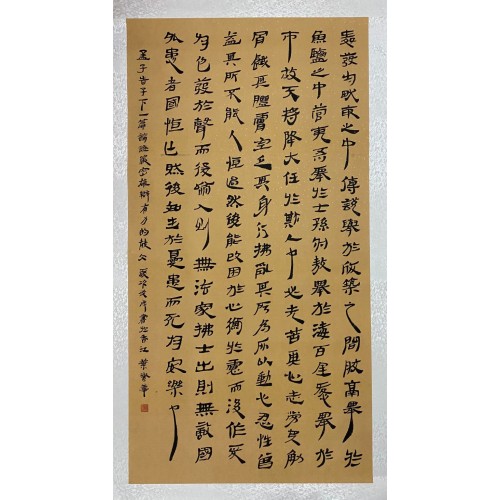 舜發於畎畝之中傅說舉於版築之間膠鬲舉於
魚鹽之中管夷吾舉於士孫叔敖舉於海百里奚舉於
市故天將降大任於斯人也必先苦其心志勞其筋
骨餓其體膚空乏其身行拂亂其所為所以動心忍性曾
益其所不能人恒過然後能改困於心衡於慮而後作征
於色發於聲而後喻入則無法家拂士出則無敵國
外患者國恒亡然後知生於憂患而死於安樂也
孟子告子下一篇論證嚴密雄辯有力的散文歲次書於香江葉